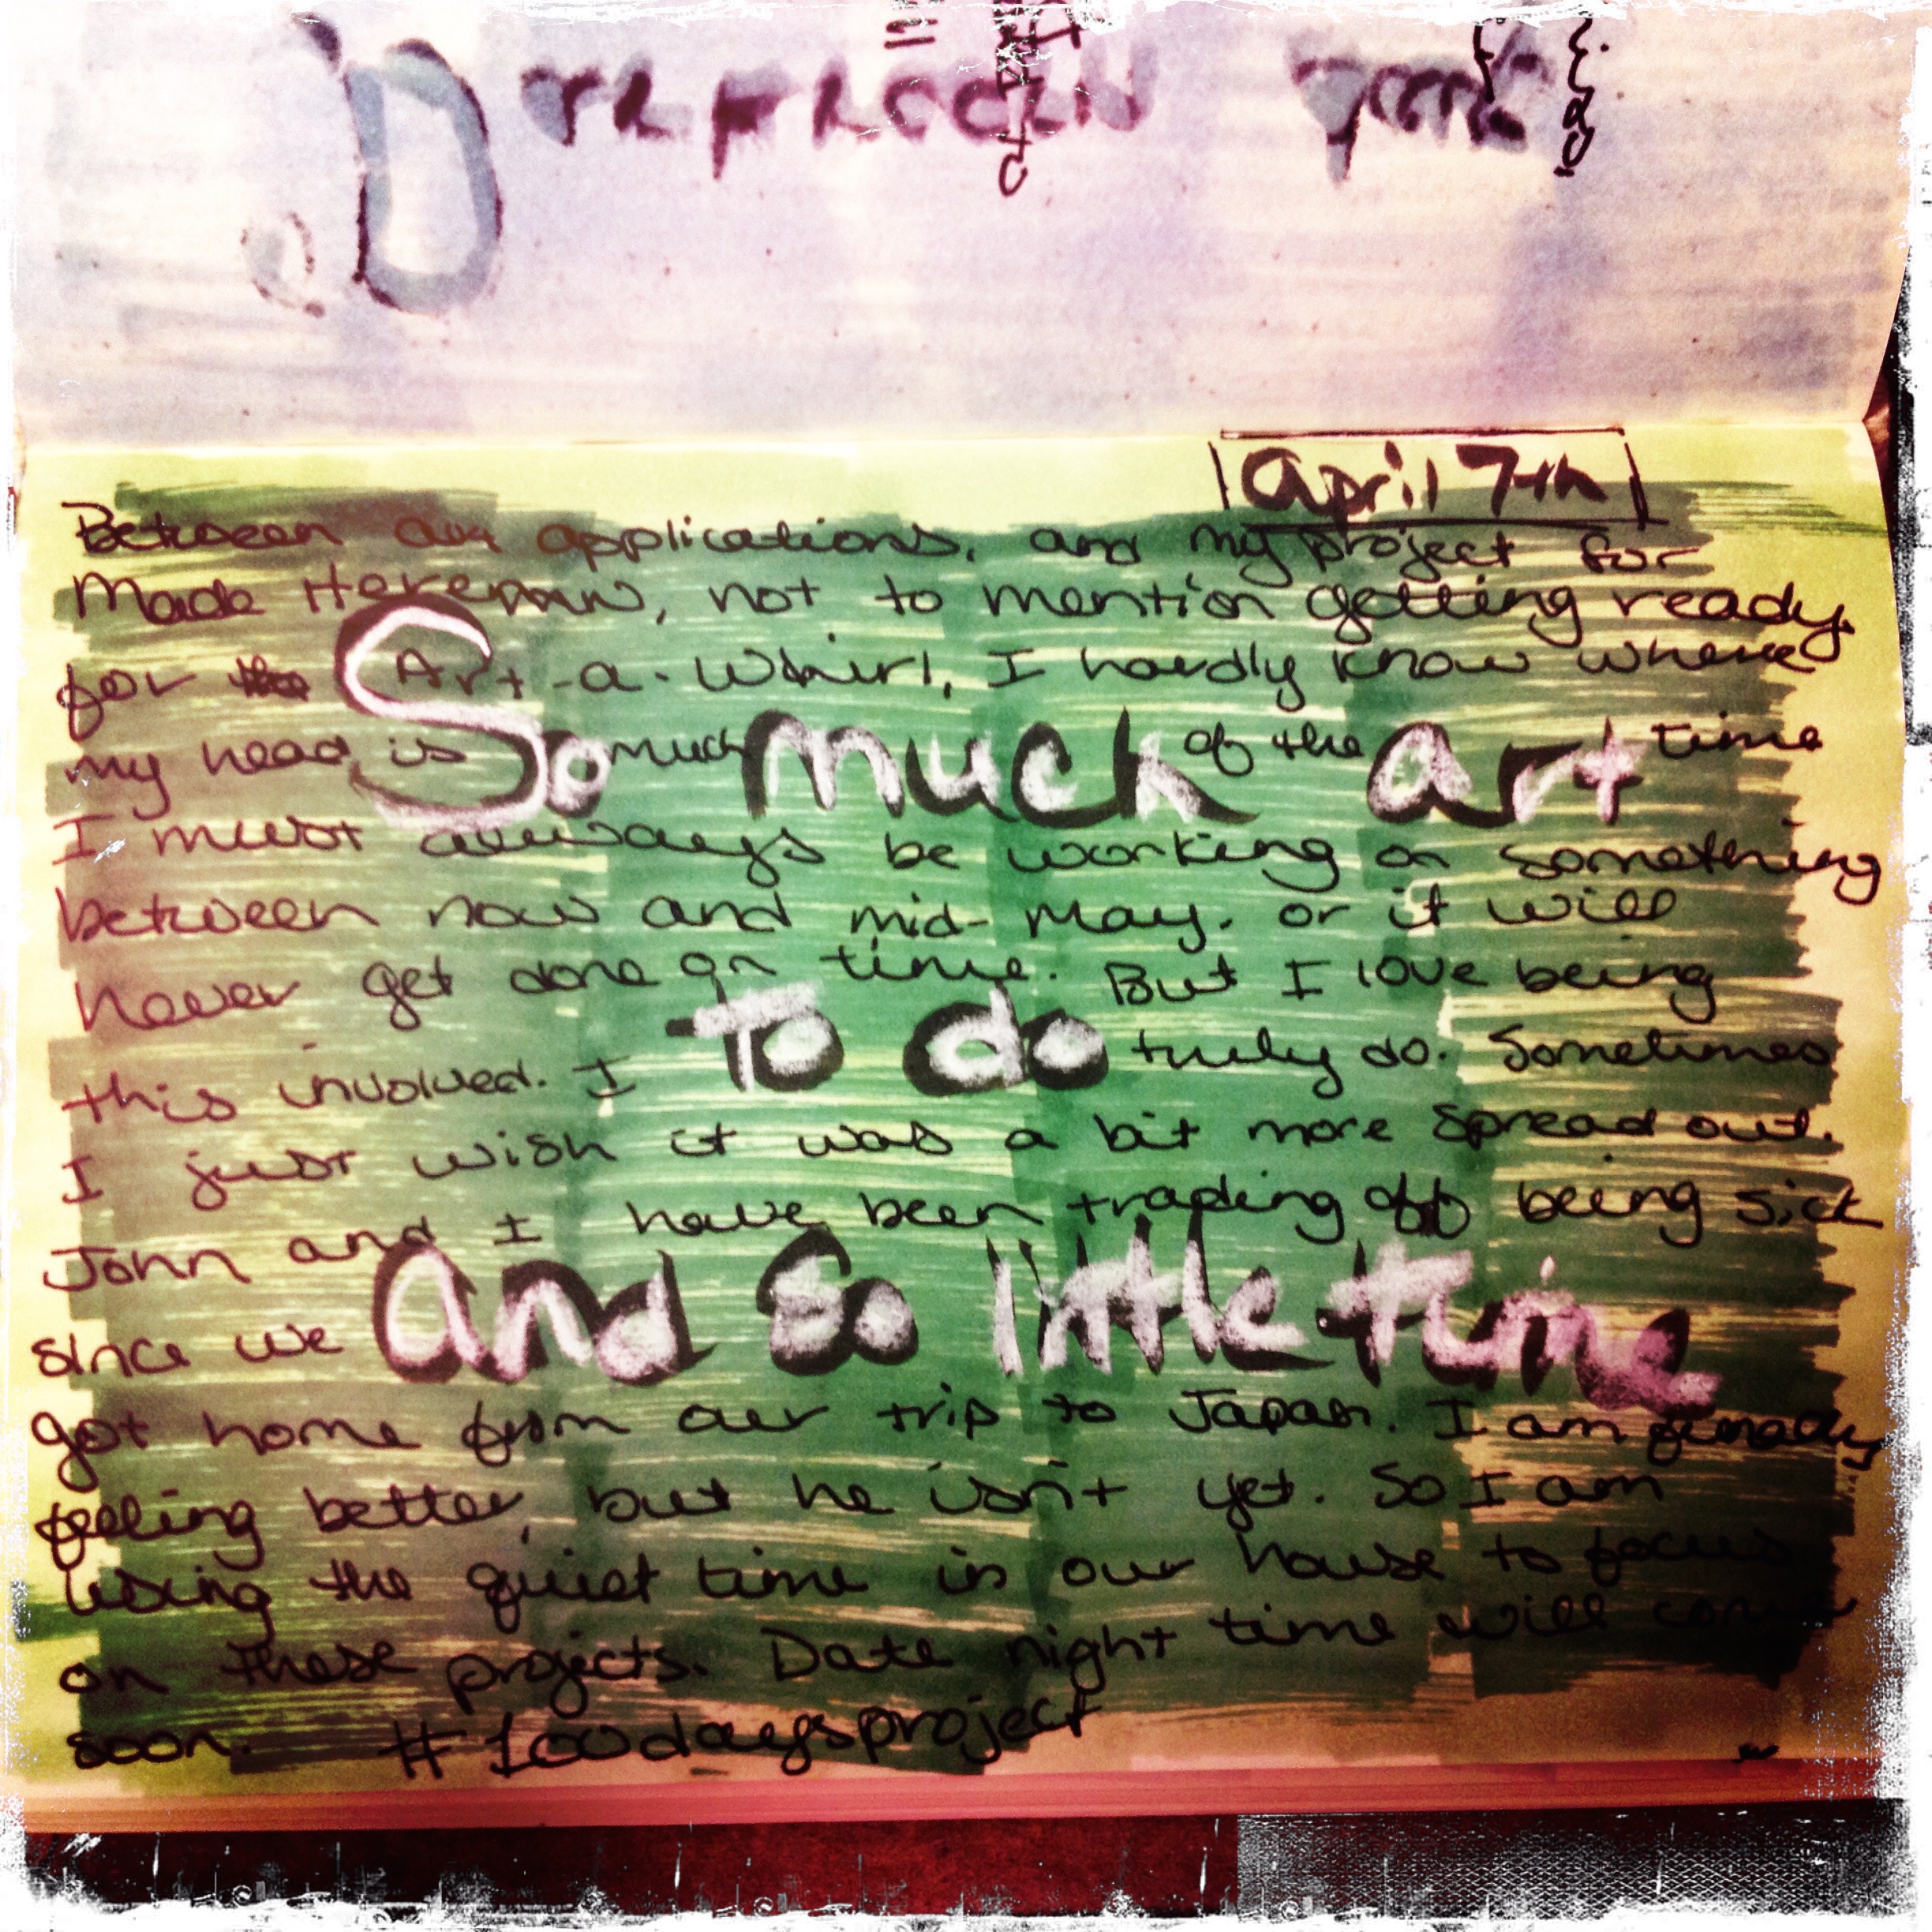 april 7th
Between applications, and my project for
Made Here, not to mention getting ready
for the Art-a-Whirl, I hardly know where
my head is much of the time
So much art
I must always be working on something
between now and mid-May. or it will
never get done on time. But I love being
this involved. I truly do. Sometimes
To do
I just wish it was a bit more spread out.
John and I have been trading off being sick
since we
and So little time
got home from our trip to Japan. I am
feeling better, but he isn't yet. So I am
using the quiet time in our house to focus
on these projects. Date night time will come
soon. #100daysproject